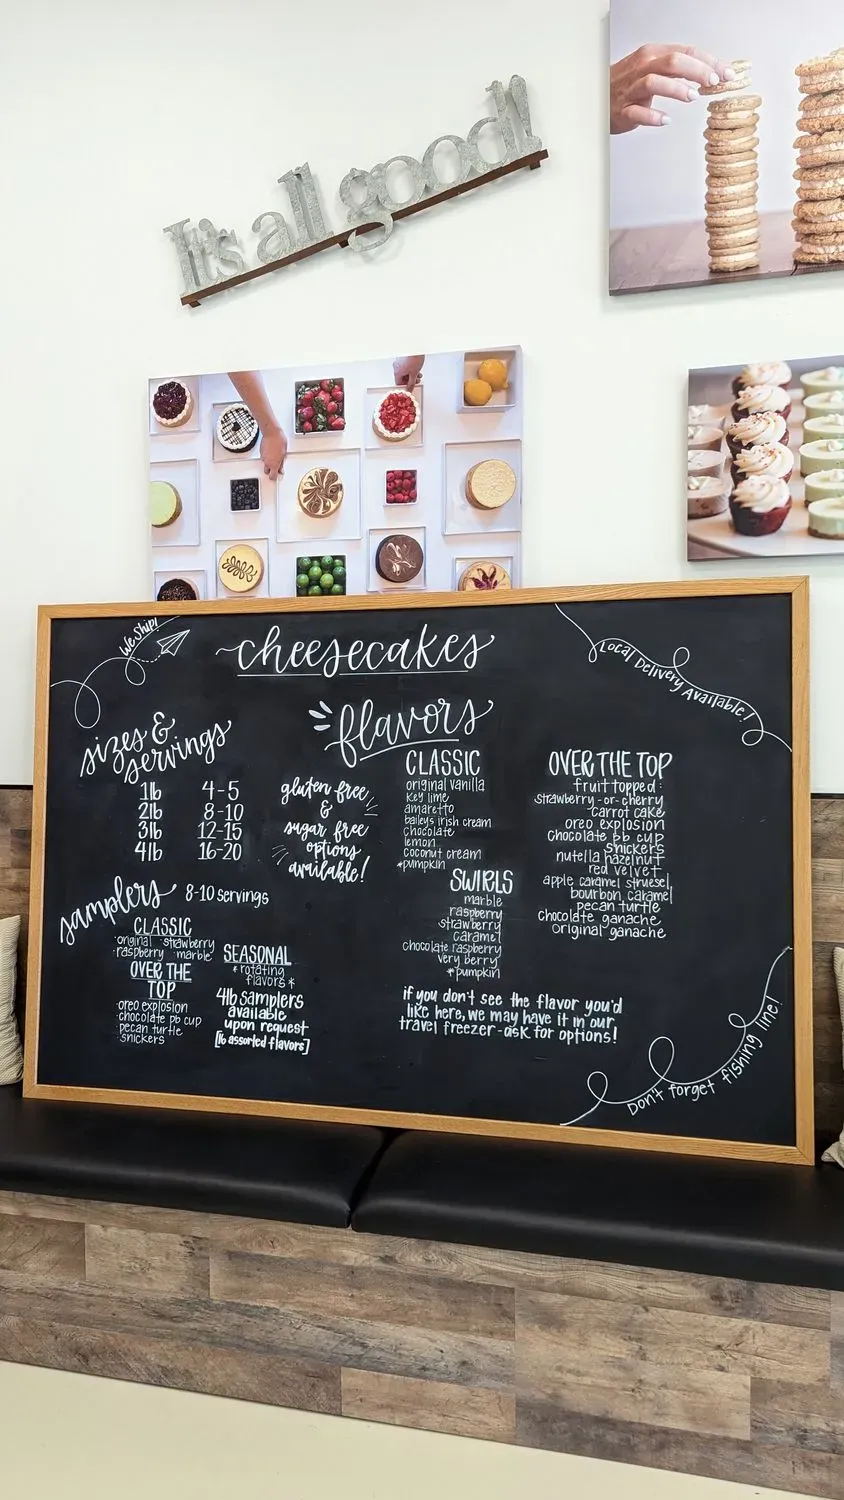 It's all good!
We Ship!
cheesecakes
Local Delivery Available!
sizes &
servings
1lb 4-5
2lb 8-10
3lb 12-15
4lb 16-20
samplers 8-10 servings
CLASSIC
original strawberry
raspberry marble
OVER THE
TOP
oreo explosion
chocolate pb cup
pecan turtle
snickers
SEASONAL
*rotating
flavors*
4lb samplers
available
upon request
[16 assorted flavors]
flavors
gluten free
&
sugar free
options
available!
CLASSIC
original vanilla
key lime
amaretto
baileys irish cream
chocolate
lemon
coconut cream
*pumpkin
SWIRLS
marble
raspberry
strawberry
caramel
chocolate raspberry
very berry
*pumpkin
OVER THE TOP
fruit topped:
strawberry-or-cherry
carrot cake
oreo explosion
chocolate pb cup
snickers
nutella hazelnut
red velvet
apple caramel struesel
bourbon caramel
pecan turtle
chocolate ganache
original ganache
if you don't see the flavor you'd
like here, we may have it in our
travel freezer-ask for options!
Don't forget fishing line!